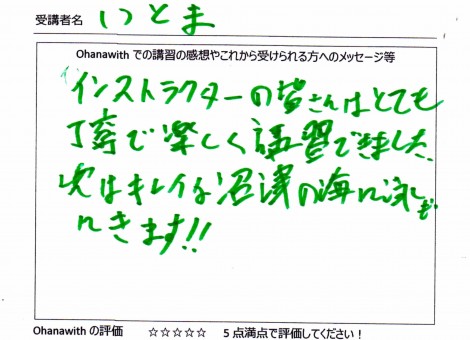 受講者名 いとま
Ohanawith での講習の感想やこれから受けられる方へのメッセージ等
インストラクターの皆さんはとても
丁寧で楽しく講習できました。
次はキレイな沼津の海に泳ぎ
にきます!!
Ohanawith の評価 ☆☆☆☆☆ 5 点満点で評価してください！